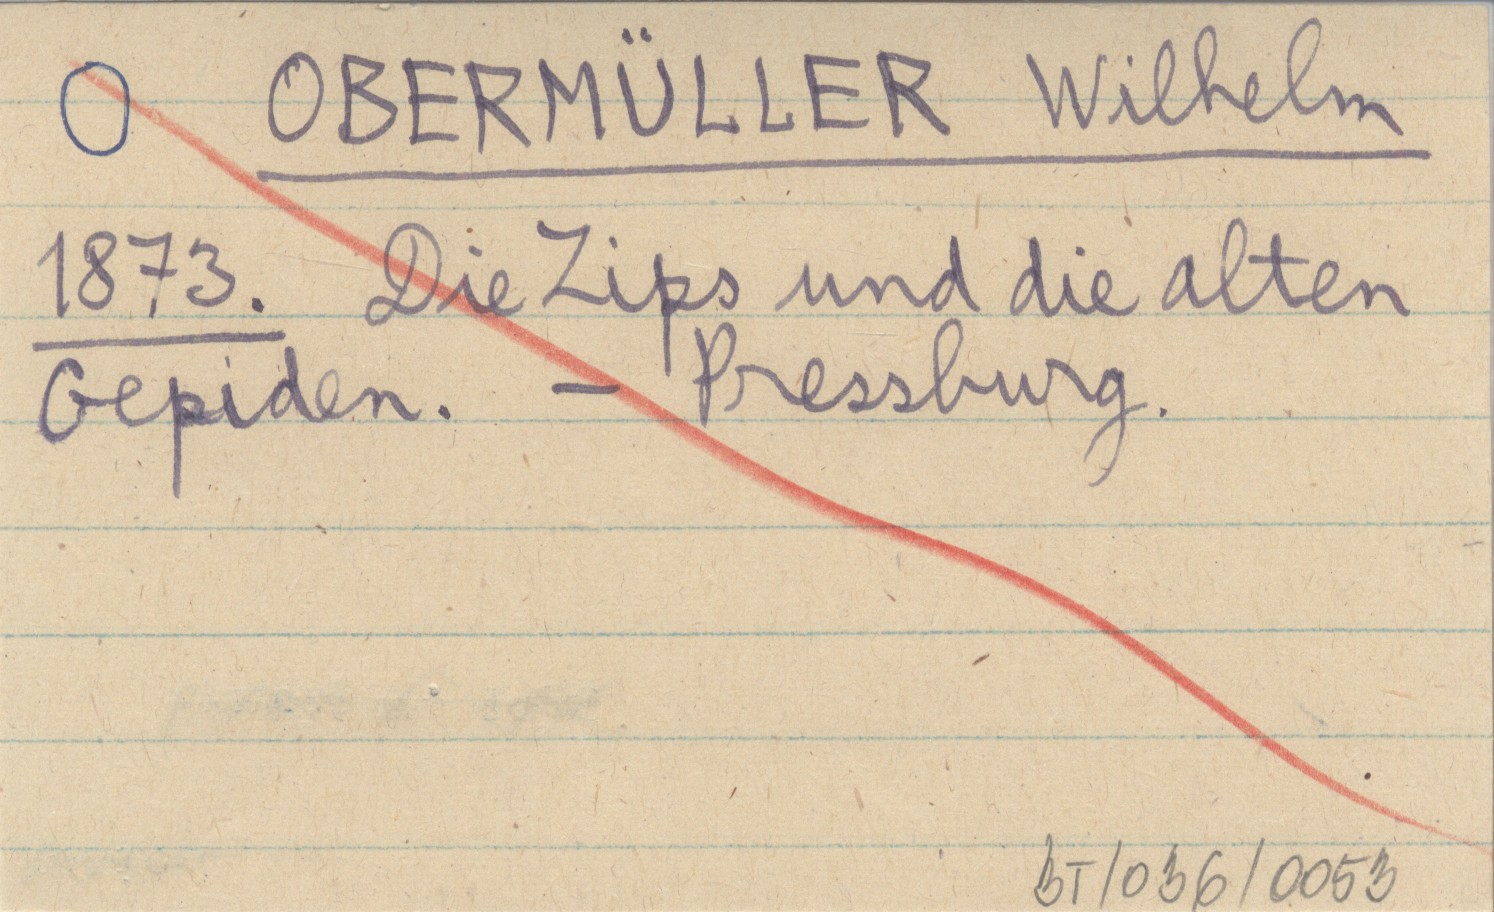 O OBERMÜLLER Wilhelm
1873. Die Zips und die alten
Gepiden. – Pressburg.
BT/036/0053